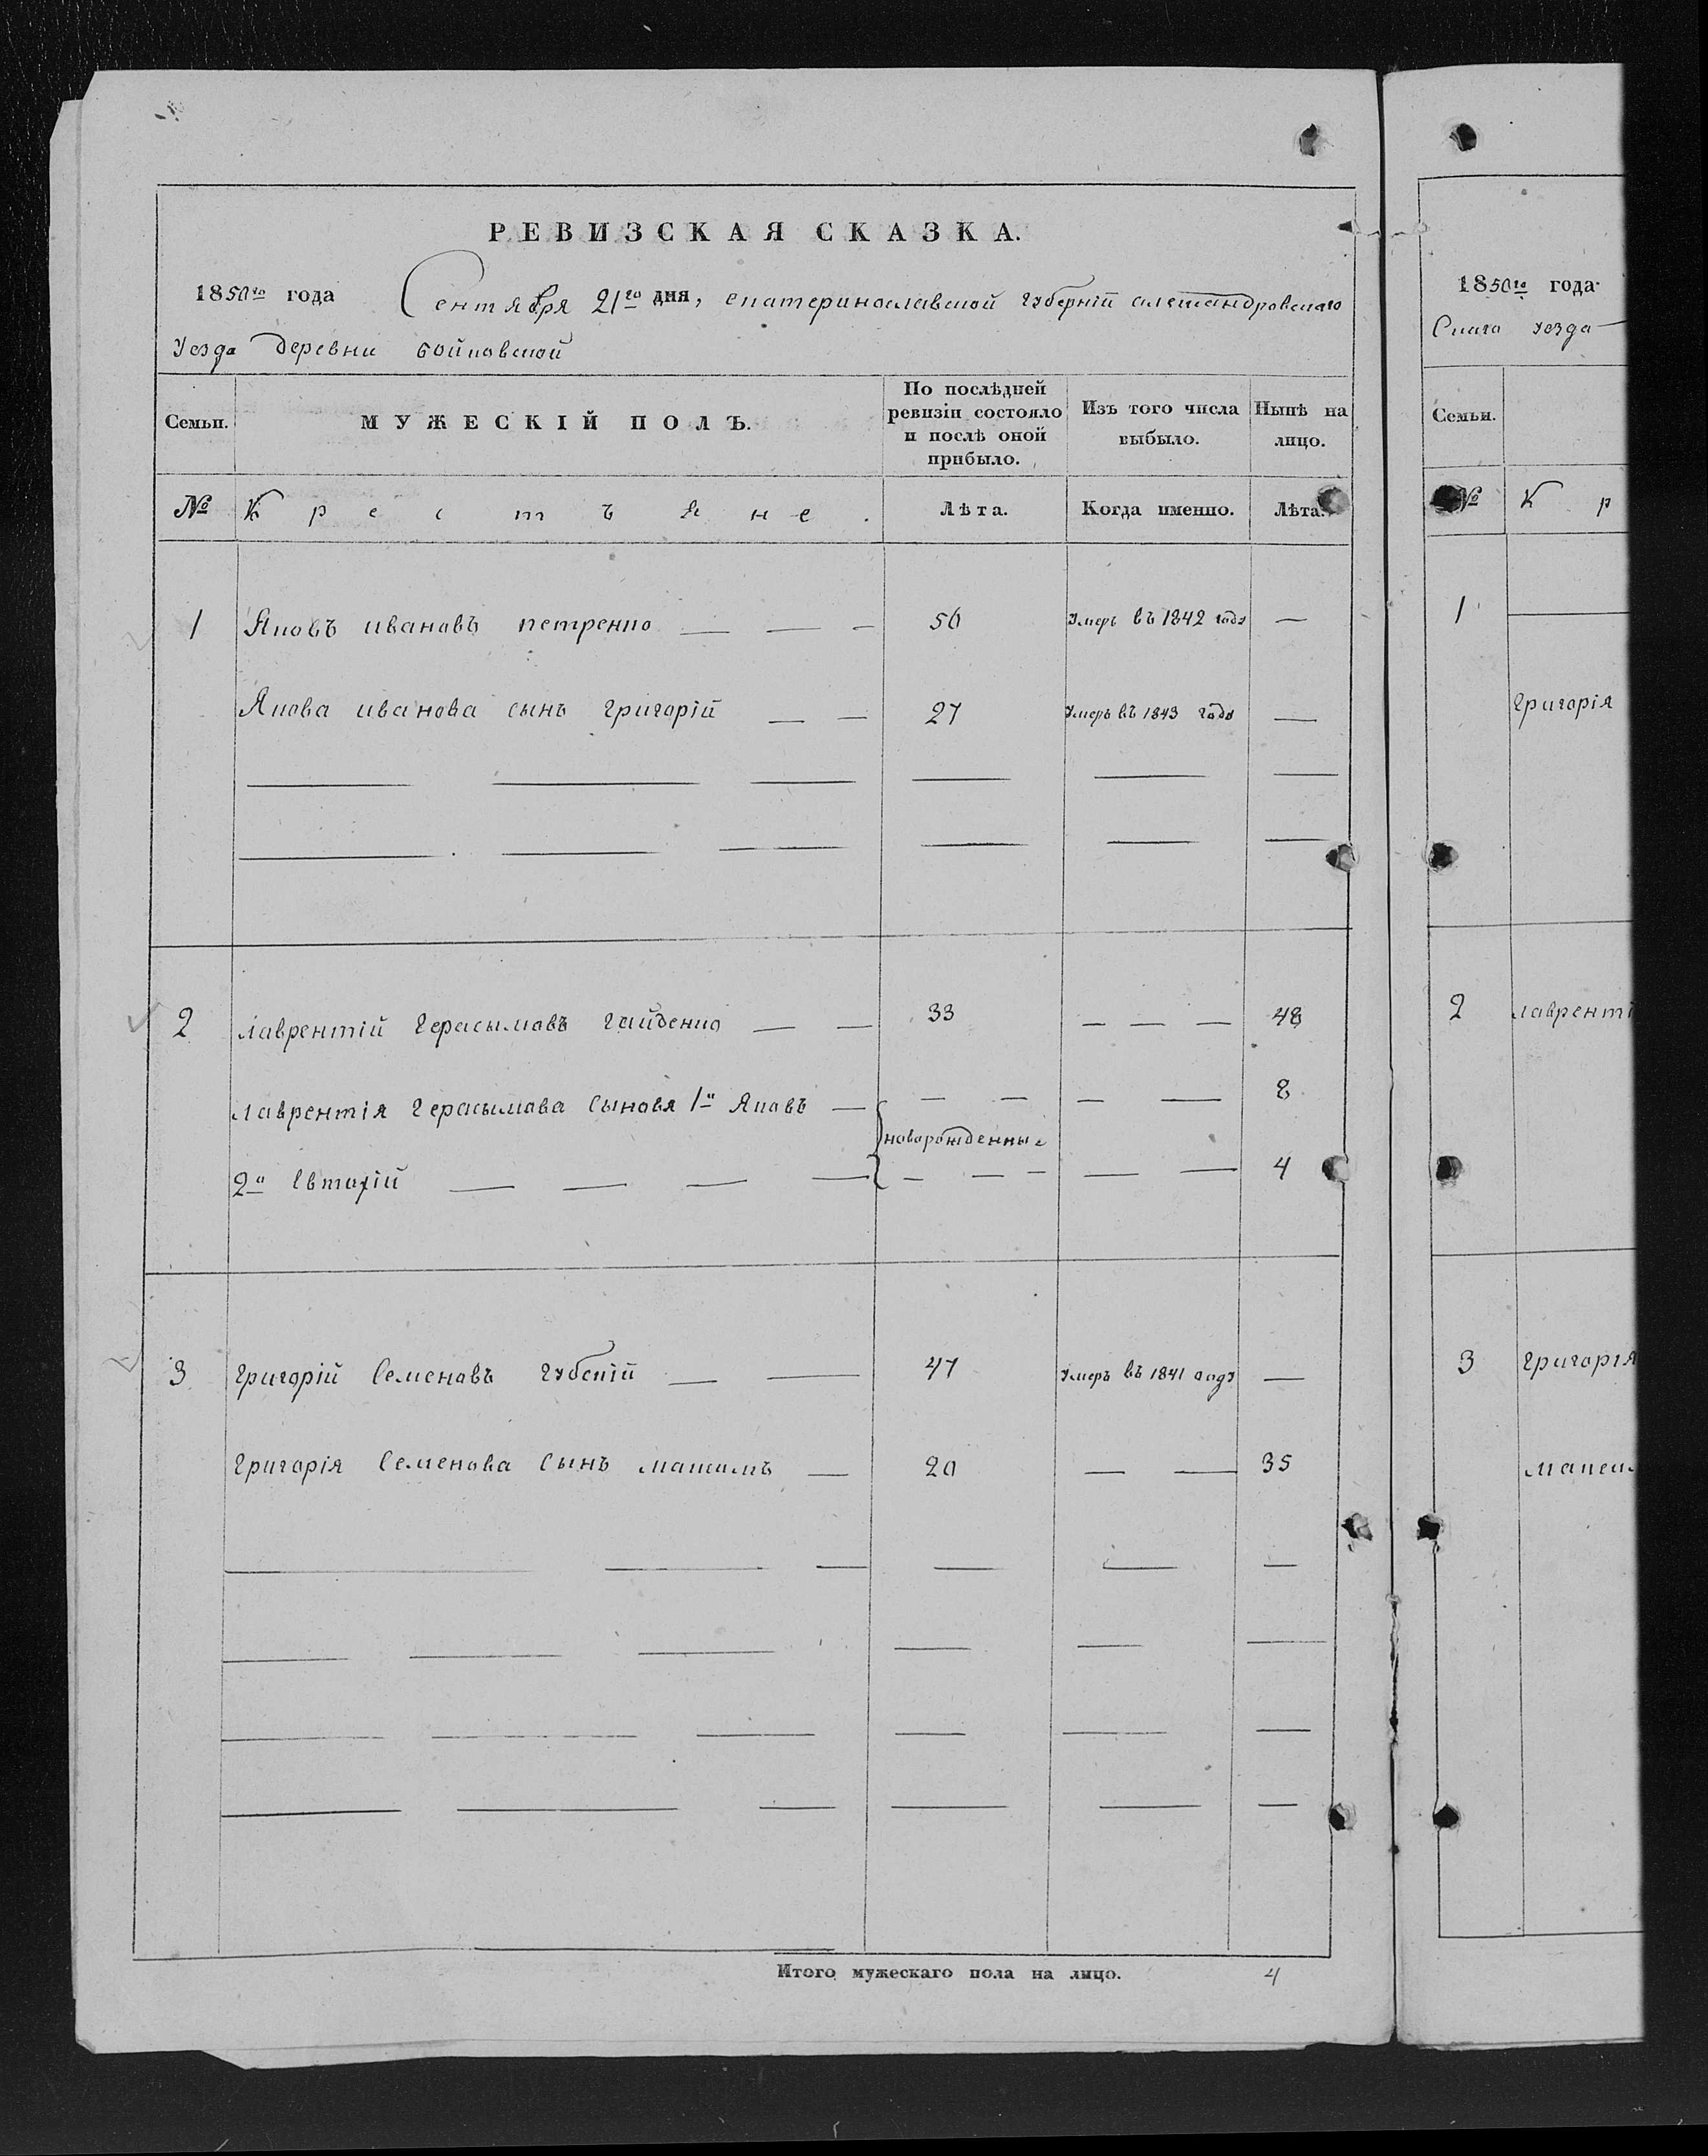 РЕВИЗСКАЯ СКАЗКА.
1850го года Сентября 21го дня, екатеринославской губернїи александровскаго
уезда деревни бойковской
Семьи.
МУЖЕСКІЙ ПОЛЪ.
По послѣдней ревизіи состояло и послѣ оной прибыло.
Изъ того числа выбыло.
Нынѣ на лицо.
№ Крестъяне. Лѣта. Когда именно. Лѣта.
1 Яковъ ивановъ петренко 50 умеръ въ 1842 годУ
Якова иванова сынъ григорїй 27 умеръ въ 1843 годУ
2 лаврентїй герасымовъ гайденко 33 48
лаврентїя герасымова сыновя 1й Яковъ 8
новорожденные
2й 4
3 григорїй семеновъ губскїй 47 умеръ въ 1841 годУ
григорїя семенова сынъ максимъ 20 35
Итого мужескаго пола на лицо. 4
1850го года
скаго уезда
Семьи.
№ К р
1
григорїя
2 лаврентї
3 григорїя